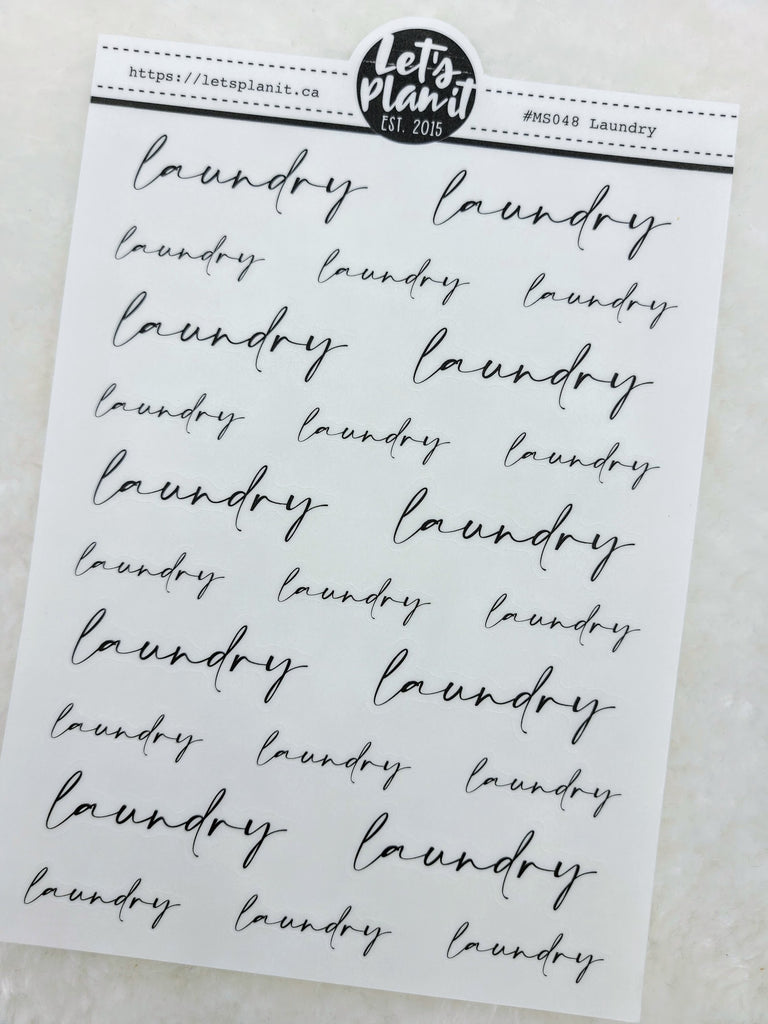 https://letsplanit.ca
Let's
Plan it
EST. 2015
#MS048 Laundry
laundry laundry
laundry laundry laundry
laundry laundry
laundry laundry laundry
laundry laundry
laundry laundry laundry
laundry laundry
laundry laundry laundry
laundry laundry
laundry laundry laundry